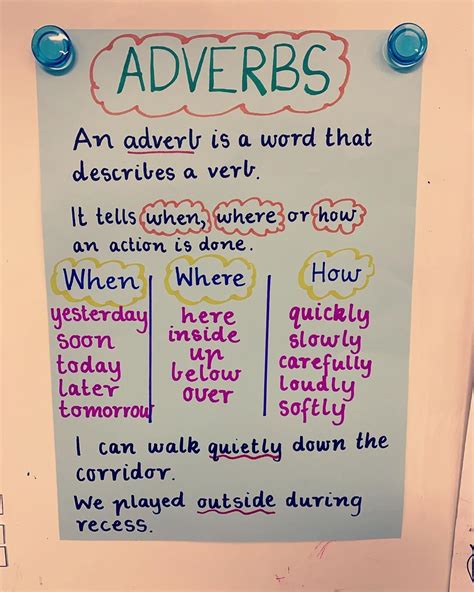 ADVERBS
An adverb is a word that
describes a verb.
It tells when, where or how
an action is done.
When
yesterday
soon
today
later
tomorrow
Where
here
inside
up
below
over
How
quickly
slowly
carefully
loudly
softly
I can walk quietly down the
corridor.
We played outside during
recess.